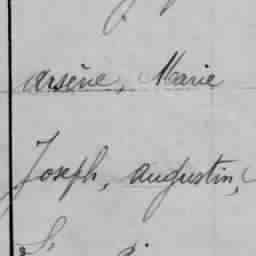 arsène, Marie
Joseph, augustin,